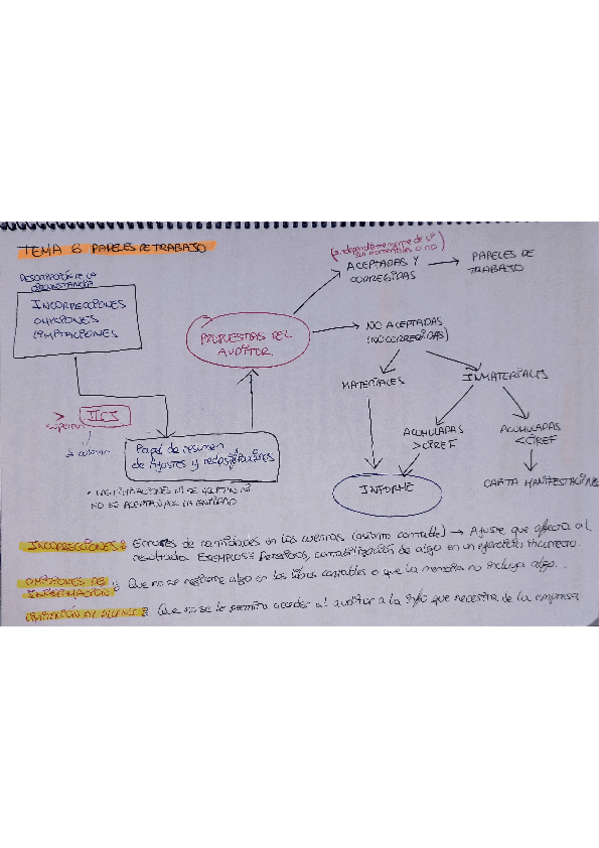 TEMA 6 PAPELES DE TRABAJO
DESCRIPCIÓN DE LA
CIRCUNSTANCIA
INCORRECCIONES
OMISIONES
LIMITACIONES
> IICI
superan
Papel de resumen
de ajustes y reclasificaciones
PROPUESTAS DEL
AUDITOR
(independientemente de si
son materiales o no)
ACEPTADAS Y
CORREGIDAS
PAPELES DE
TRABAJO
NO ACEPTADAS
(NO CORREGIDAS)
MATERIALES
INMATERIALES
ACUMULADAS
>CIREF
ACUMULADAS
<CIREF
INFORME
CARTA MANIFESTACIONES
INCORRECCIONES: Errores de cantidades en las cuentas (asiento contable) → Ajuste que afecta al
resultado. EJEMPLOS: contabilización de algo en un ejercicio incorrecto.
OMISIONES DE
INFORMACIÓN: Que no se registre algo en los libros contables o que la memoria no incluya algo...
LIMITACIÓN AL ALCANCE: Que no se le permita acceder al auditor a la info que necesita de la empresa